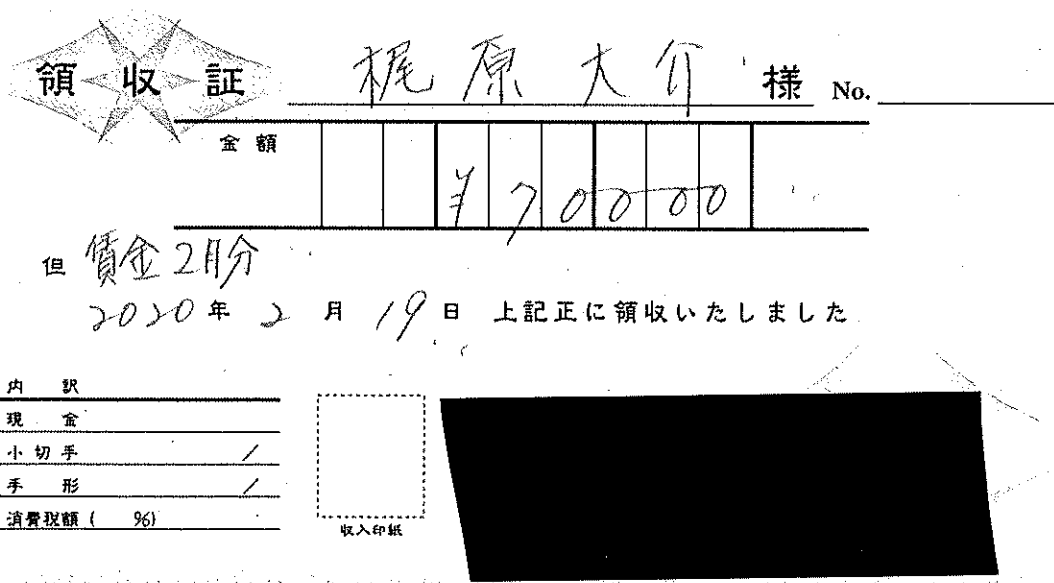 領収証 梶原大介 様 No.
金額
¥70000
但 賃金2月分
2020年2月19日 上記正に領収いたしました
内訳
現金
小切手 /
手形 /
消費税額( %)
収入印紙